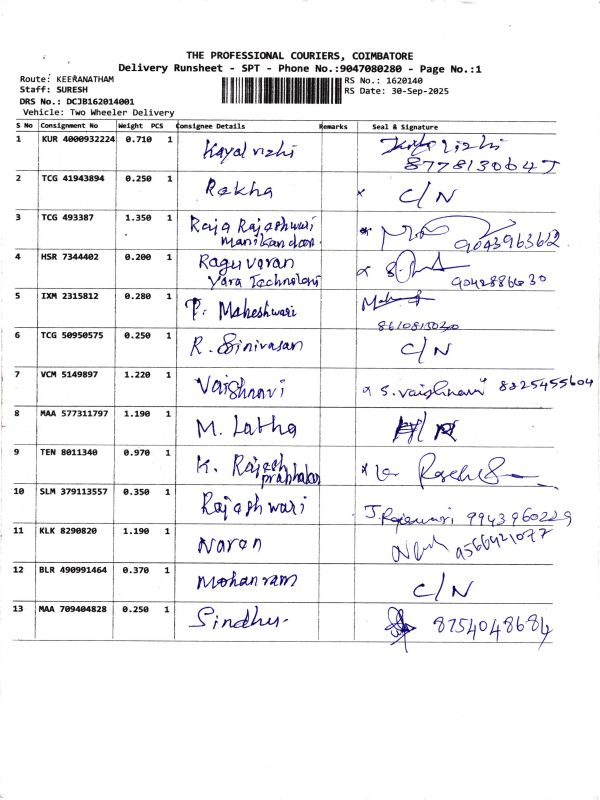 THE PROFESSIONAL COURIERS, COIMBATORE
Delivery Runsheet - SPT - Phone No.:9047080280 - Page No.:1
Route: KEERANATHAM RS No.: 1620140
Staff: SURESH RS Date: 30-Sep-2025
DRS No.: DCJB162014001
Vehicle: Two Wheeler Delivery
S No Consignment No Weight PCS Consignee Details Remarks Seal & Signature
1 KUR 4000932224 0.710 1 Kayalvizhi
2 TCG 41943894 0.250 1 Rekha x C/N
3 TCG 493387 1.350 1 Raja Rajeshwari
Manikandan 9043963612
4 HSR 7344402 0.200 1 Raguvaran
Yara Technology
5 IXM 2315812 0.280 1 P. Maheshwari
6 TCG 50950575 0.250 1 R. Srinivasan C/N
7 VCM 5149897 1.220 1 Vaishnavi S. Vaishnavi 8825455604
8 MAA 577311797 1.190 1 M. Latha
9 TEN 8011340 0.970 1 K. Rajesh
prabhakar
10 SLM 379113557 0.350 1 Rajeshwari J. Rajeswari 9943960229
11 KLK 8290820 1.190 1 Naren 9566421077
12 BLR 490991464 0.370 1 Mohanram C/N
13 MAA 709404828 0.250 1 Sindhu 8754048684